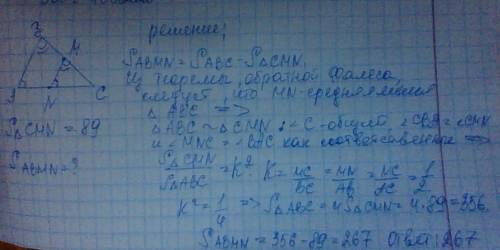 решение;
S ABMN = S ABC - S ΔCMN.
Из теоремы, обратной Фалеса,
следует, что MN - средняя линия
Δ ABC =>
Δ ABC ~ Δ CMN : ∠C - общий, ∠CBA = ∠CMN
и ∠MNC = ∠BAC как соответственные =>
S ΔCMN / S ΔABC = K². K = MC/BC = MN/AB = NC/AC = 1/2
K² = 1/4 => S ΔABC = 4 S ΔCMN = 4 · 89 = 356.
S ABMN = 356 - 89 = 267 Ответ: 267
B
M
N
C
S ΔCMN = 89
S ABMN = ?